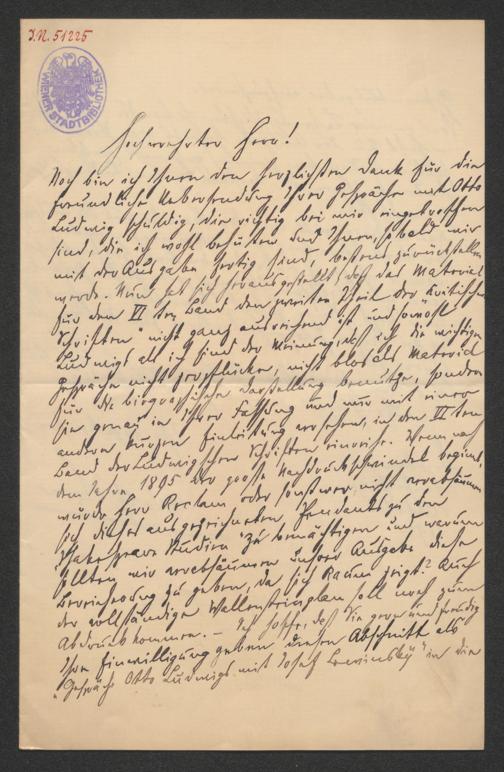 J.N. 51225
WIENER STADTBIBLIOTHEK
Hochverehrter Herr!
Noch bin ich Ihnen den herzlichsten Dank für die
freundliche Uebersendung Ihrer Gespräche mit Otto
Ludwig schuldig, die richtig bei mir eingetroffen
sind, die ich wohl behüten und Ihnen, sobald wir
mit der Ausgabe fertig sind, bestens zurückstellen
werde. Nun hat sich herausgestellt, daß das Material
für den VI ten Band den zweiten Theil der "kritischen
Schriften" nicht ganz ausreichend ist und sowohl
Ludwigs als ich sind der Meinung, daß ich die wichtigen
Gespräche nicht zerpflücke, nicht blos als Material
für die biographische Darstellung benutze, sondern
sie genau in Ihrer Fassung und nur mit einer
andern kurzen Einleitung versehen, in den VI ten
Band der Ludwigschen Schriften einreihe. Wenn nach
dem Jahre 1895 der große Nachdruckschwindel beginnt,
würde Herr Reclam oder sonstwer nicht versäumen
sich dieses ausgezeichneten Pendants zu den
Shakespeare Studien zu bemächtigen und warum
sollten wir versäumen unsrer Ausgabe diese
Bereicherung zu geben, da sich Raum zeigt? Auch
der vollständige Wallensteinplan soll noch zum
Abdruck kommen. – Ich hoffe, daß Sie gern und freudig
Ihre Einwilligung geben diesen Abschnitt als
"Gespräche Otto Ludwigs mit Josef Lewinsky" in die